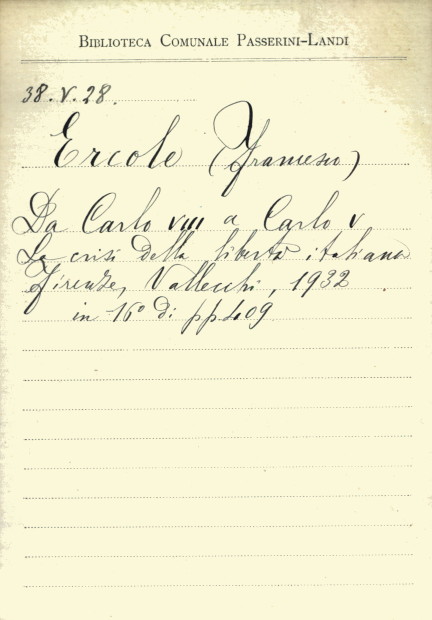 BIBLIOTECA COMUNALE PASSERINI-LANDI
38.V.28.
Ercole (Francesco)
Da Carlo VIII a Carlo V
La crisi della libertà italiana
Firenze, Vallecchi, 1932.
in 16° di pp 409